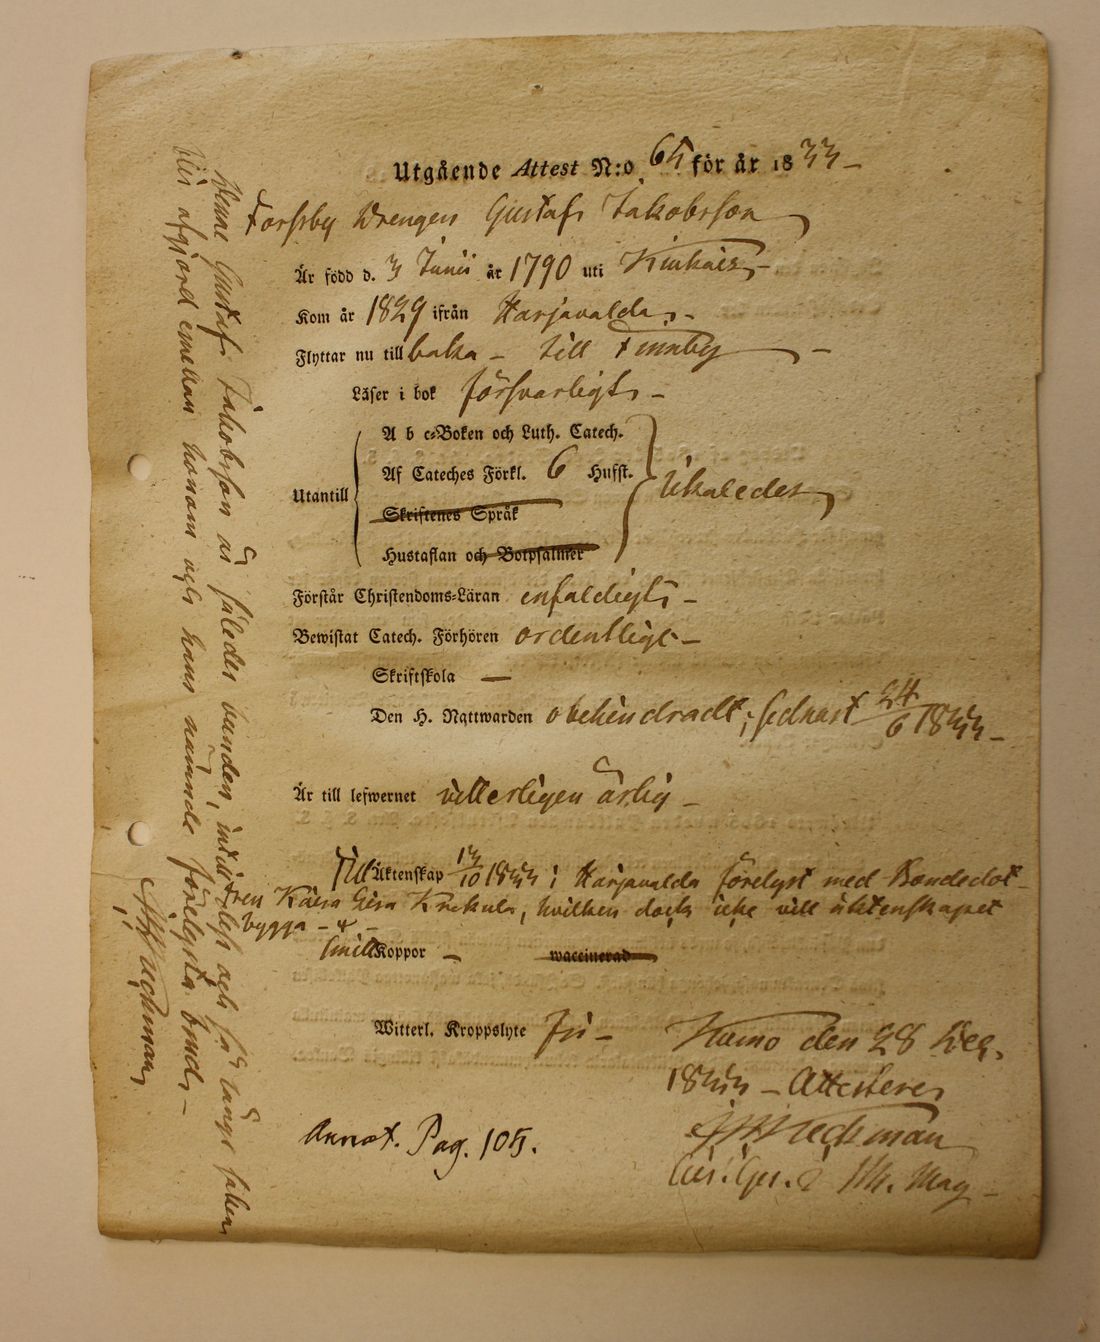 Utgående Attest N:o 65 för år 1833
Forssby Drengen Gustaf Jakobsson
Är född d. 3 Junii år 1790 uti Kiukais
Kom år 1829 ifrån Harjavalda
Flyttar nu till baka till Finnby
Läser i bok försvarligt
A b c-Boken och Luth. Catech.
Af Cateches Förkl. 6 Hufst.
Utantill likaledes
Skriftenes Språk
Hustaflan och Botpsalmer
Förstår Christendoms-Läran enfaldigt
Bewistat Catech. Förhören ordentligt
Skriftskola —
Den H. Nattwarden obehindradt, sednast 24/6 1833
Är till lefwernet vitterligen ärlig
Till Äktenskap 13/10 1833 i Harjavalda förelyst med Bondedot-
tren Kaisa Krekula, hvilken dock icke vill äktenskapet
bygga
Koppor — waccinerad
Witterl. Kroppslyte Fri
Kumo den 28 Dec.
1833 Attesterer
Annot. Pag. 105.
Denne Gustaf Jakobsson är således bunden, intill dess och så länge saken
blir afgjord emellan honom och hans nämnde förelysta brud